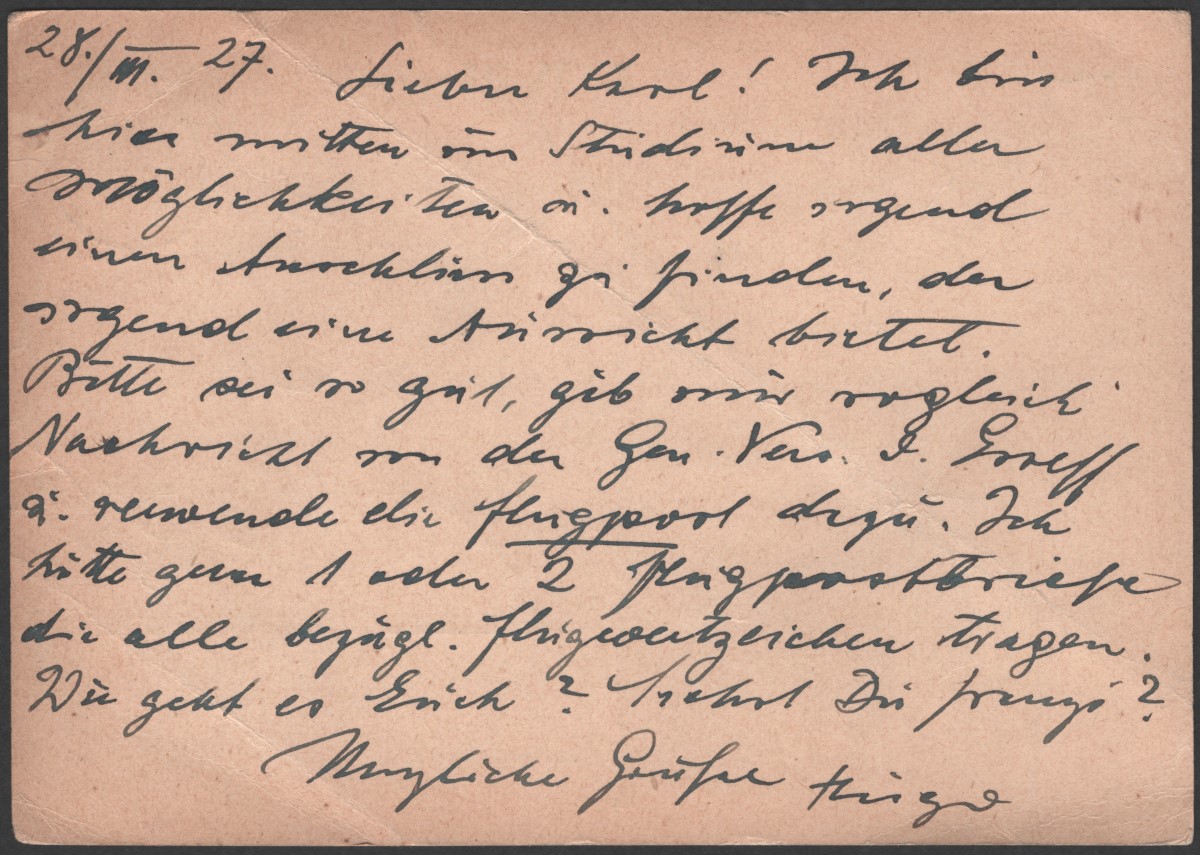 28./III. 27. Lieber Karl! Ich bin
hier mitten im Studium aller
Möglichkeiten u. hoffe irgend
einen Anschluss zu finden, der
irgend eine Aussicht bietet.
Bitte sei so gut, gib mir sogleich
Nachricht von der Gen. Vers. d.
u. verwende die Flugpost dazu. Ich
hätte gern 1 oder 2 Flugpostbriefe
die alle bezügl. Flugwertzeichen tragen.
Wie geht es Euch? Siehst Du Franzi?
Herzliche Grüße Hugo